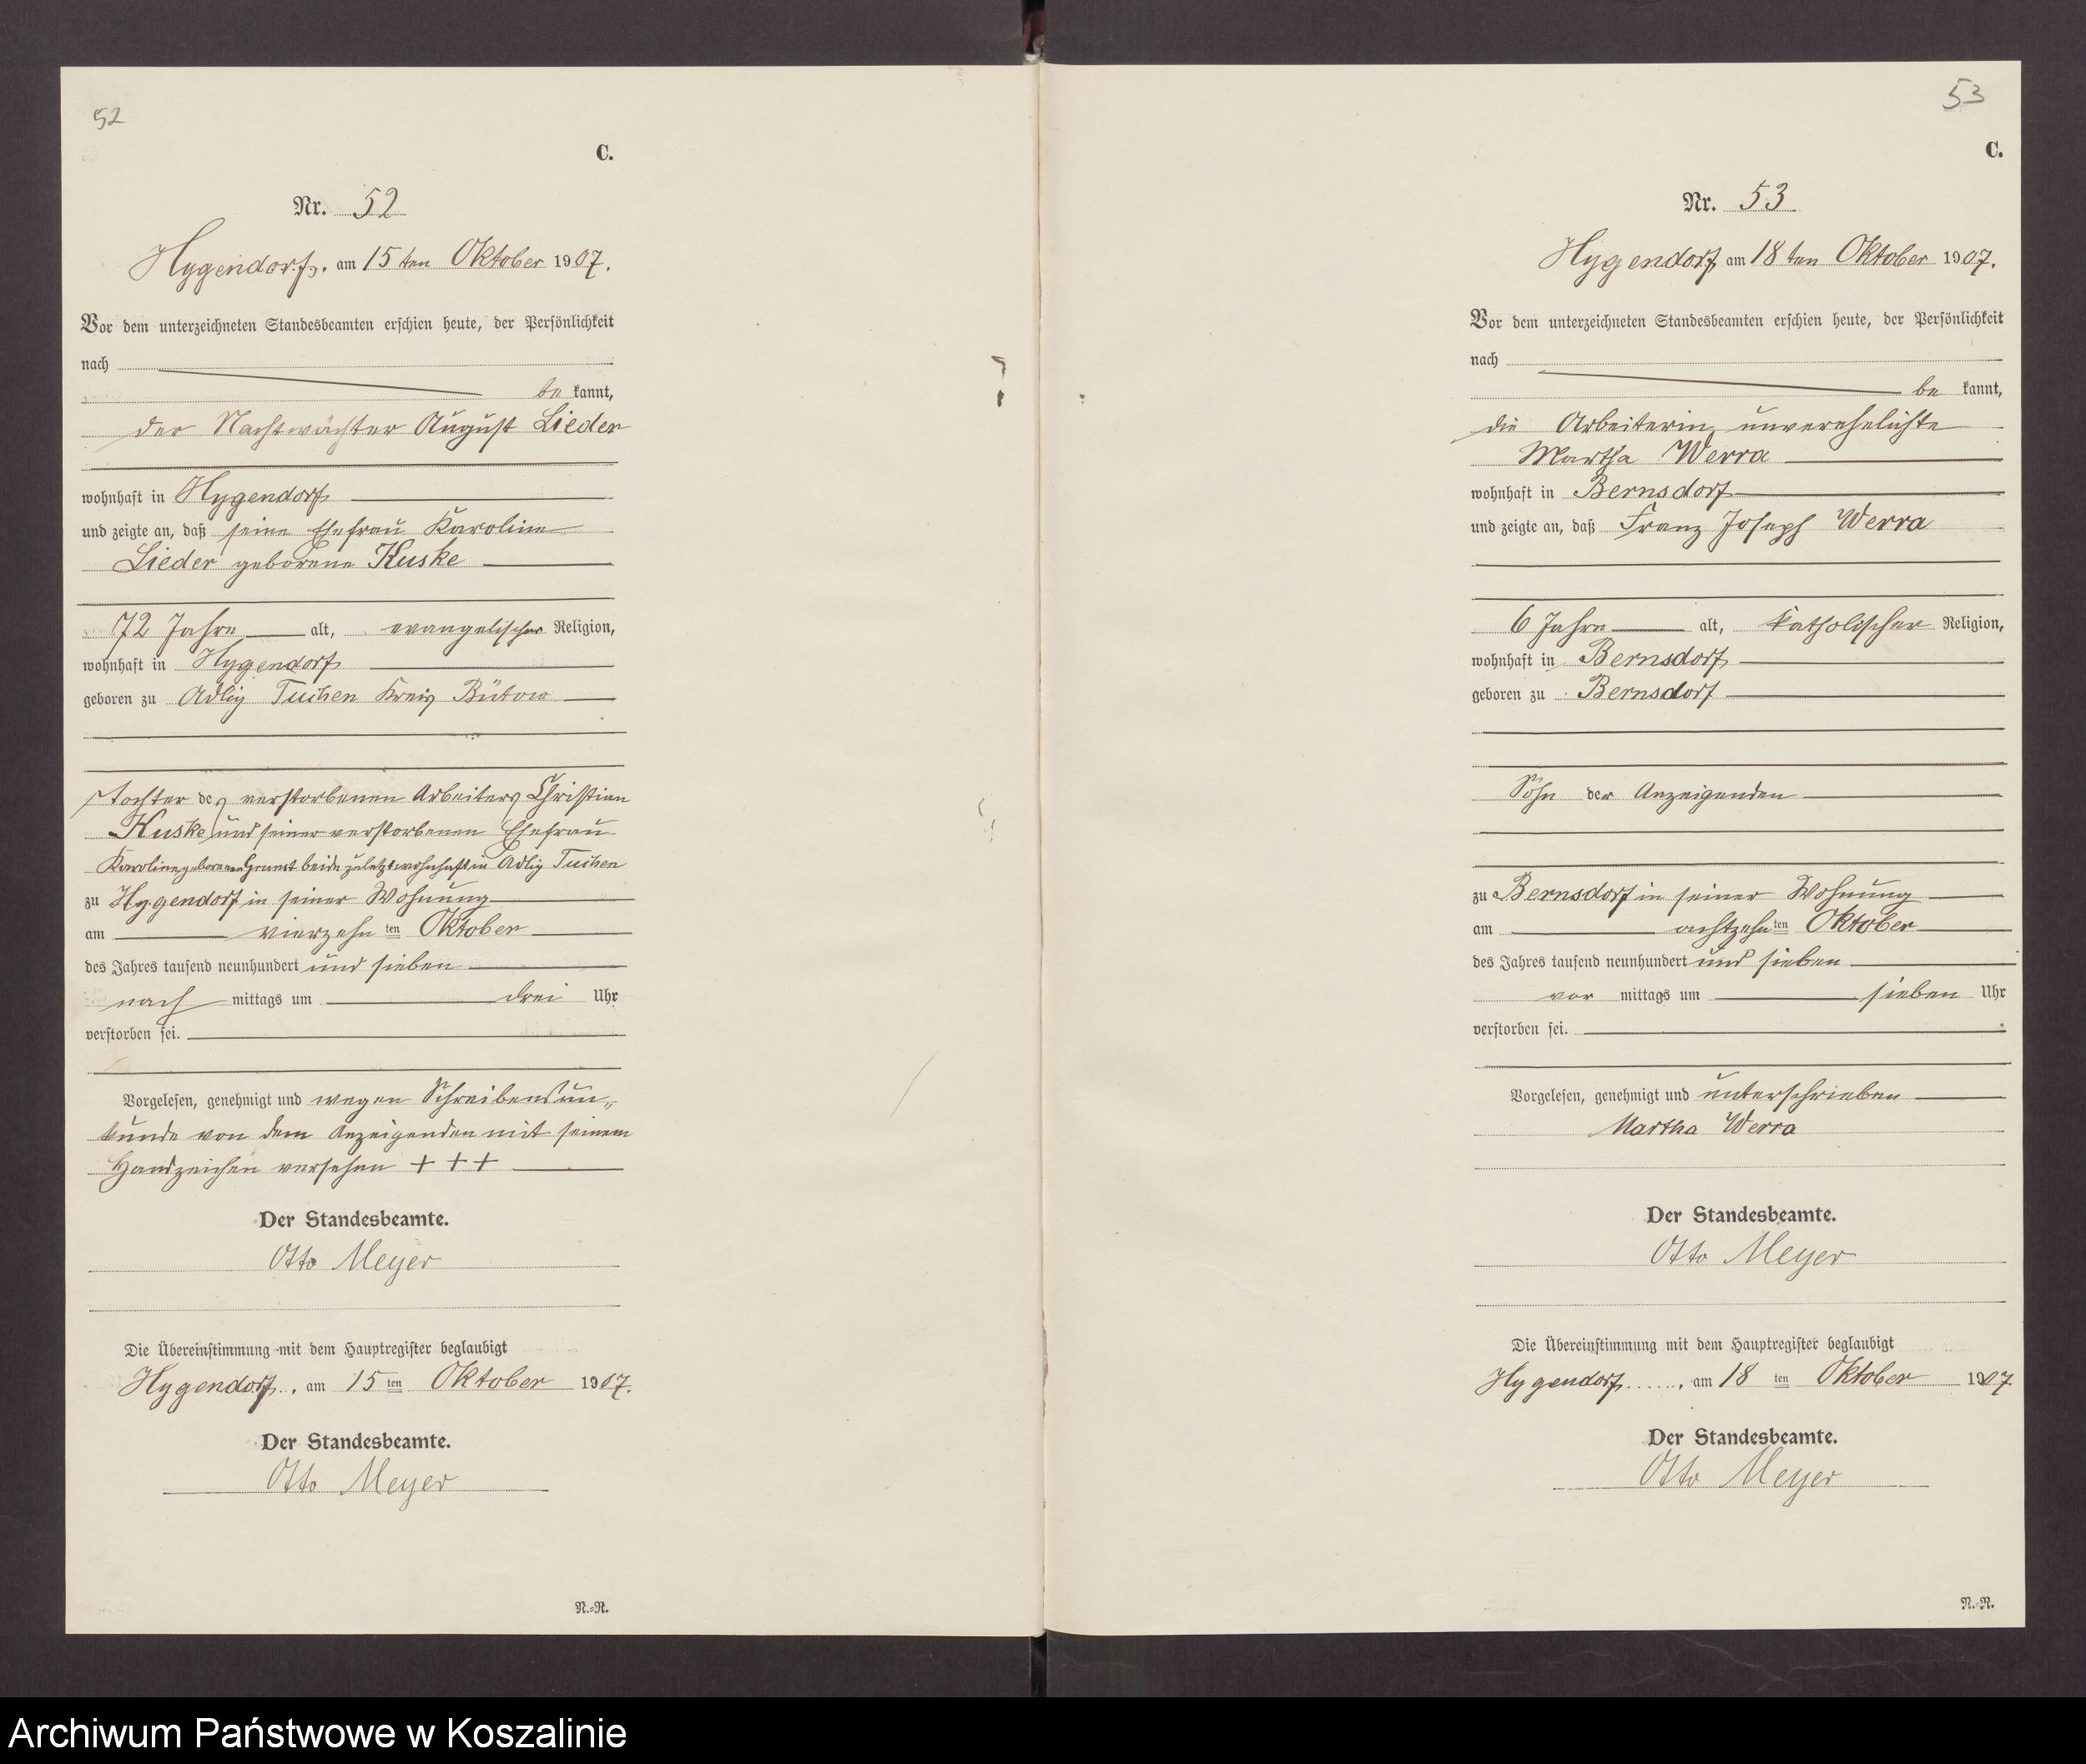 52
C.
Nr. 52
Hygendorf, am 15 ten Oktober 1907.
Vor dem unterzeichneten Standesbeamten erschien heute, der Persönlichkeit
nach
be kannt,
der Nachtwächter August Lieder
wohnhaft in Hygendorf
und zeigte an, daß seine Ehefrau Karoline
Lieder geborene Kuske
72 Jahre alt, evangelischer Religion,
wohnhaft in Hygendorf
geboren zu Adlig Tuchen Kreis Bütow
Tochter des verstorbenen Arbeiters Christian
Kuske und seiner verstorbenen Ehefrau
Karoline geborenen beide zuletzt wohnhaft in Adlig Tuchen
zu Hygendorf in seiner Wohnung
am vierzehn ten Oktober
des Jahres tausend neunhundert und sieben
nach mittags um drei Uhr
verstorben sei.
Vorgelesen, genehmigt und wegen Schreibensun-
kunde von dem Anzeigenden mit seinem
Handzeichen versehen + + +
Der Standesbeamte.
Otto Meyer
Die Übereinstimmung mit dem Hauptregister beglaubigt
Hygendorf, am 15 ten Oktober 1907.
Der Standesbeamte.
Otto Meyer
N.-R.
53
C.
Nr. 53
Hygendorf am 18 ten Oktober 1907.
Vor dem unterzeichneten Standesbeamten erschien heute, der Persönlichkeit
nach
be kannt,
die Arbeiterin, unverehelichte
Martha Werra
wohnhaft in Bernsdorf
und zeigte an, daß Franz Joseph Werra
6 Jahre alt, katholischer Religion,
wohnhaft in Bernsdorf
geboren zu Bernsdorf
Sohn der Anzeigenden
zu Bernsdorf in seiner Wohnung
am achtzehn ten Oktober
des Jahres tausend neunhundert und sieben
vor mittags um sieben Uhr
verstorben sei.
Vorgelesen, genehmigt und unterschrieben
Martha Werra
Der Standesbeamte.
Otto Meyer
Die Übereinstimmung mit dem Hauptregister beglaubigt
Hygendorf, am 18 ten Oktober 1907
Der Standesbeamte.
Otto Meyer
N.-R.
Archiwum Państwowe w Koszalinie